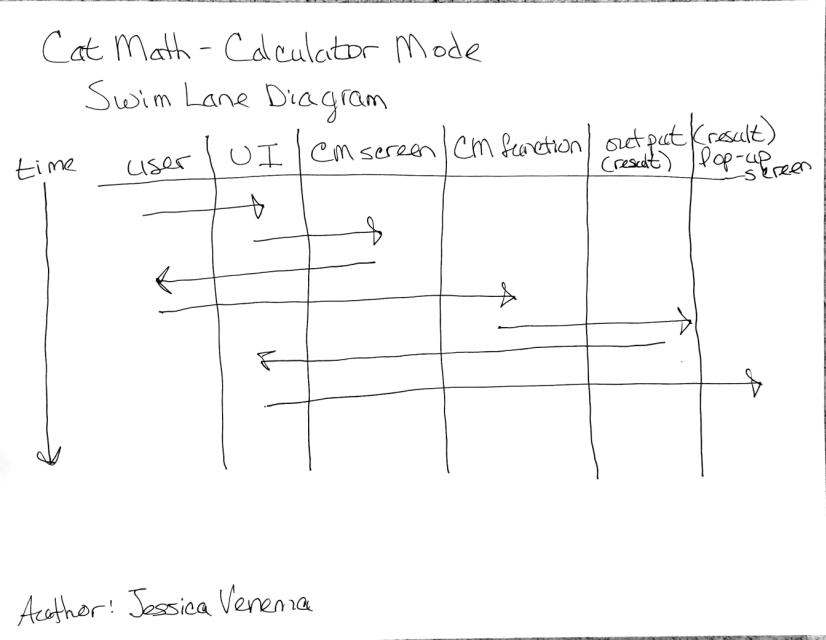 Cat Math - Calculator Mode
Swim Lane Diagram
time user UI CM screen CM function output (result) (result) Pop-up screen
Author: Jessica Venema